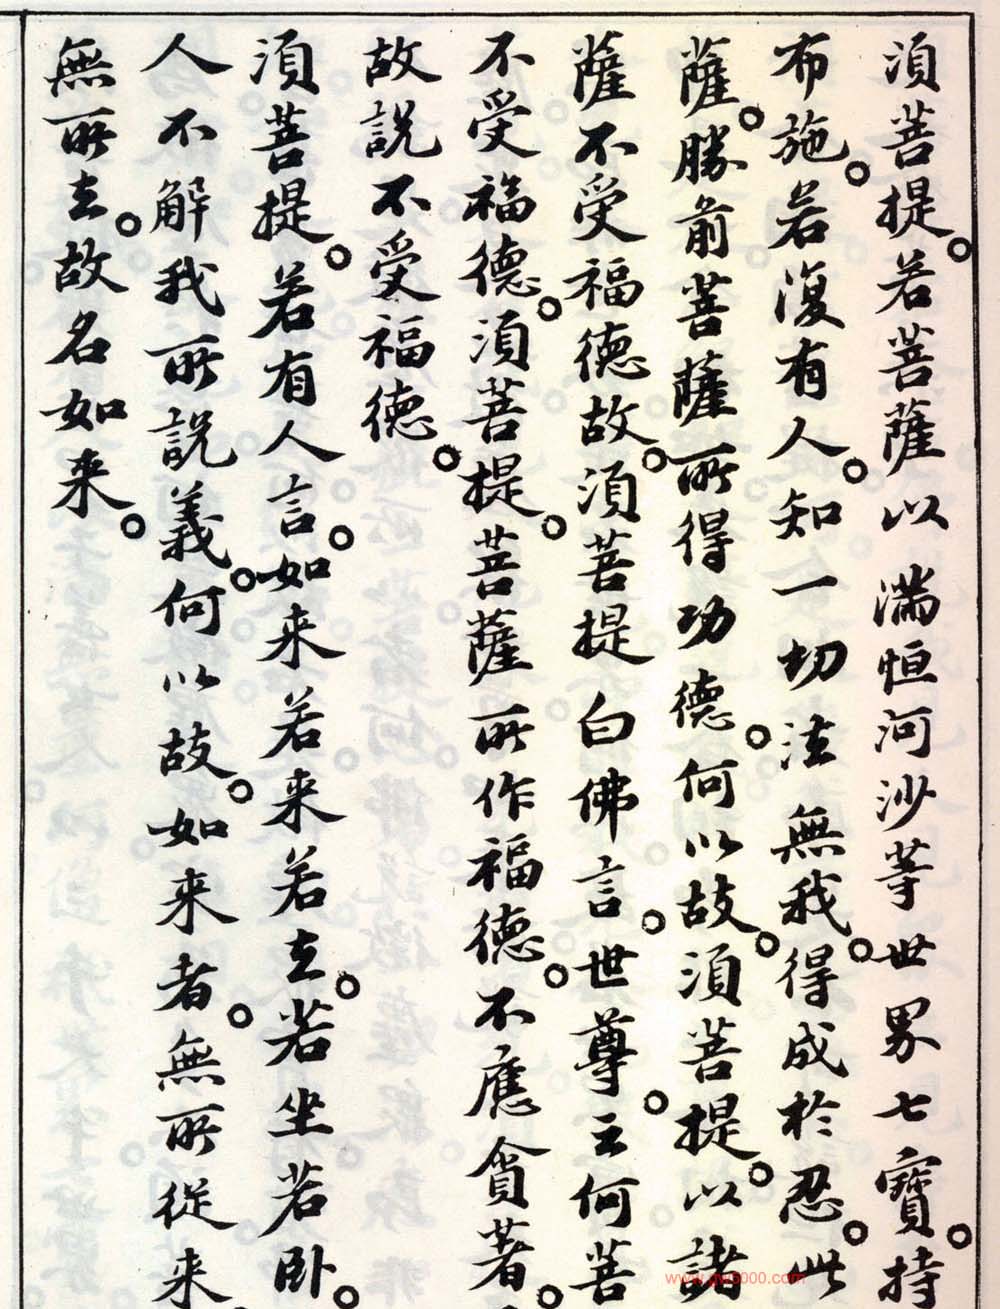 須菩提。若菩薩以滿恒河沙等世界七寶。持
布施。若復有人。知一切法無我。得成於忍。此
薩。勝前菩薩所得功德。何以故。須菩提。以諸
薩不受福德故。須菩提白佛言。世尊。云何菩
不受福德。須菩提。菩薩所作福德。不應貪著。
故說不受福德。
須菩提。若有人言。如来若来若去。若坐若卧。
人不解我所說義。何以故。如来者。無所從来
無所去。故名如来。